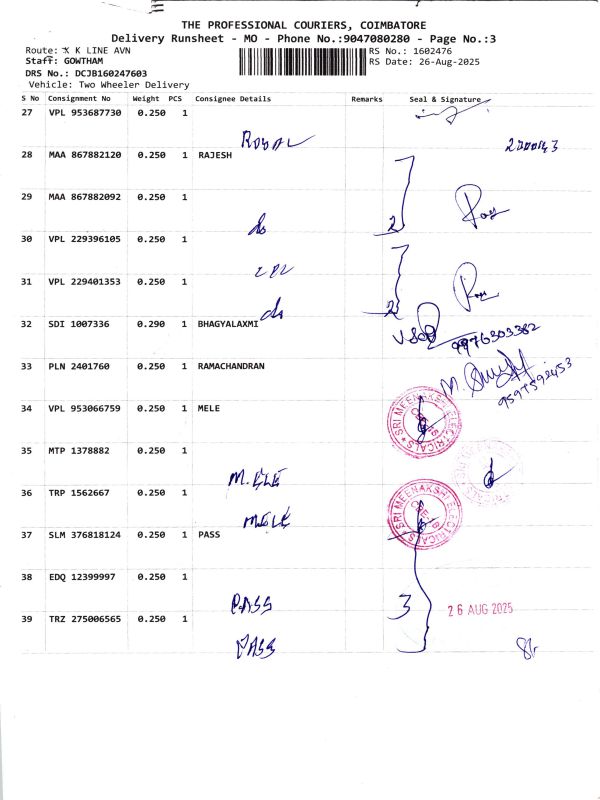 THE PROFESSIONAL COURIERS, COIMBATORE
Delivery Runsheet - MO - Phone No.:9047080280 - Page No.:3
Route: K K LINE AVN
RS No.: 1602476
Staff: GOWTHAM
RS Date: 26-Aug-2025
DRS No.: DCJB160247603
Vehicle: Two Wheeler Delivery
S No Consignment No Weight PCS Consignee Details Remarks Seal & Signature
27 VPL 953687730 0.250 1
28 MAA 867882120 0.250 1 RAJESH
29 MAA 867882092 0.250 1
do 2
30 VPL 229396105 0.250 1
31 VPL 229401353 0.250 1
do 2
32 SDI 1007336 0.290 1 BHAGYALAXMI
9976303382
33 PLN 2401760 0.250 1 RAMACHANDRAN
34 VPL 953066759 0.250 1 MELE
SRI MEENAKSHI ELECTRICALS
35 MTP 1378882 0.250 1
M.ELE
36 TRP 1562667 0.250 1
MELE
SRI MEENAKSHI ELECTRICALS
37 SLM 376818124 0.250 1 PASS
38 EDQ 12399997 0.250 1
PASS 3 26 AUG 2025
39 TRZ 275006565 0.250 1
PASS